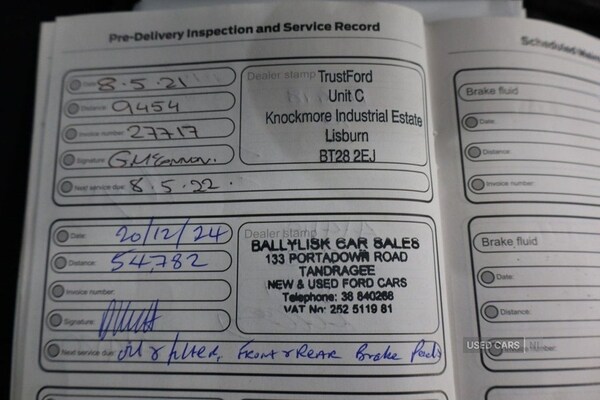 Pre-Delivery Inspection and Service Record
Date: 8.5.21
Distance: 9454
Invoice number: 27717
Signature: G.McConnon.
Next service due: 8.5.22.
Dealer stamp
TrustFord
Unit C
Knockmore Industrial Estate
Lisburn
BT28 2EJ
Date: 20/12/24
Distance: 54,782
Invoice number:
Signature:
Next service due: Oil & filter, Front & Rear Brake Pads
Dealer stamp
BALLYLISK CAR SALES
133 PORTADOWN ROAD
TANDRAGEE
NEW & USED FORD CARS
Telephone: 38 840268
VAT No: 252 5119 81
Scheduled
Brake fluid
Date:
Distance:
Invoice number:
Brake fluid
Date:
Distance:
Invoice number:
USED CARS NI